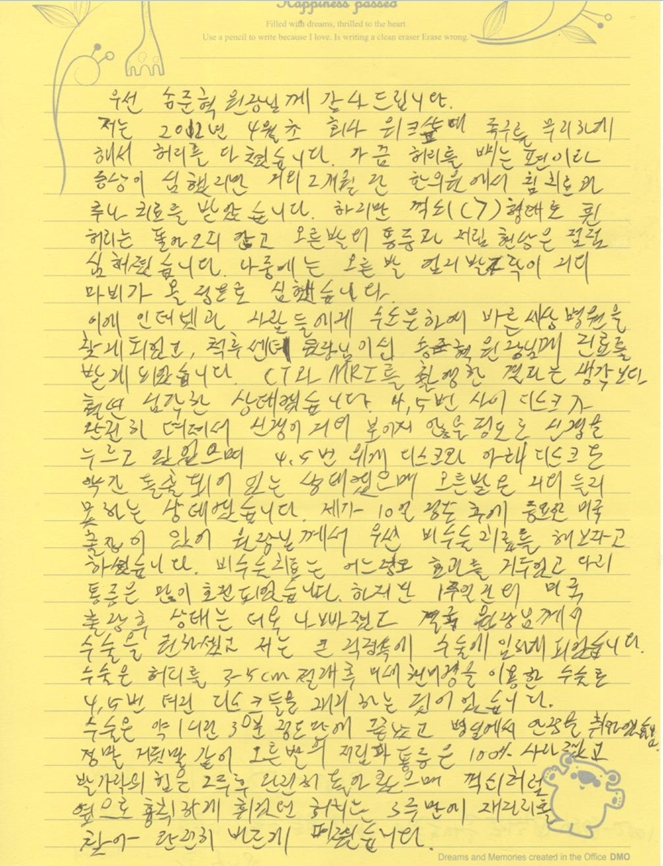 Happiness passed
Filled with dreams, thrilled to the heart
Use a pencil to write because I love. Is writing a clean eraser Erase wrong.
우선 송준혁 원장님께 감사드립니다.
저는 2012년 4월초 회사 워크샵때 족구를 무리하게
해서 허리를 다쳤습니다. 가끔 허리를 삐는 편이라
증상이 심했지만 거의 2개월간 한의원에서 침치료와
추나 치료를 받았습니다. 하지만 꺽쇠(〈7) 형태로 휜
허리는 돌아오지 않고 오른발의 통증과 저림 현상은 점점
심해졌습니다. 나중에는 오른발 엄지발가락이 거의
마비가 올 정도로 심했습니다.
이에 인터넷과 사람들에게 수소문하여 바른세상병원을
찾게되었고, 척추센터 원장님이신 송준혁 원장님께 진료를
받게 되었습니다. CT와 MRI를 촬영한 결과는 생각보다
훨씬 심각한 상태였습니다. 4,5번 사이 디스크가
완전히 터져서 신경이 거의 보이지 않을 정도로 신경을
누르고 있었으며 4,5번 위에 디스크와 아래 디스크도
약간 돌출되어 있는 상태였으며 오른발은 거의 들지
못하는 상태였습니다. 제가 10일 정도 후에 중요한 미국
출장이 있어 원장님께서 우선 비수술치료를 해보자고
하셨습니다. 비수술치료는 어느정도 효과를 거두었고 다리
통증은 많이 호전되었습니다. 하지만 1주일간의 미국
출장후 상태는 더욱 나빠졌고 결국 원장님께서
수술을 권하셨고 저는 큰 걱정속에 수술에 임하게 되었습니다.
수술은 허리를 3-5cm 절개후 미세현미경을 이용한 수술로
4,5번 터진 디스크들을 제거하는 것이었습니다.
수술은 약 1시간 30분 정도만에 끝났고 병실에서 안정을 취하였습니다.
정말 거짓말 같이 오른발의 저림과 통증은 100% 사라졌고
발가락의 힘은 2주후 완전히 돌아왔으며 꺽쇠처럼
옆으로 흉칙하게 휘었던 허리는 3주만에 제자리로
찾아 완전히 바르게 펴졌습니다.
Dreams and Memories created in the Office DMO